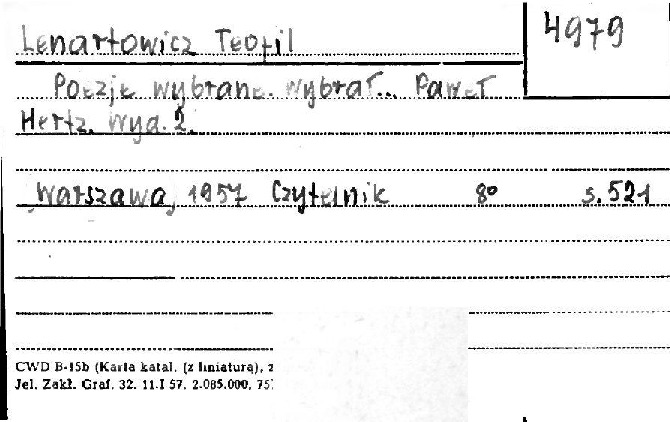 Lenartowicz Teofil
4979
Poezje wybrane. Wybrał... Paweł
Hertz. Wyd. 2.
Warszawa, 1957 Czytelnik 8º s. 521
CWD B-15b (Karta katal. (z liniaturą), z
Jel. Zakł. Graf. 32. 11.I 57. 2.085.000. 75